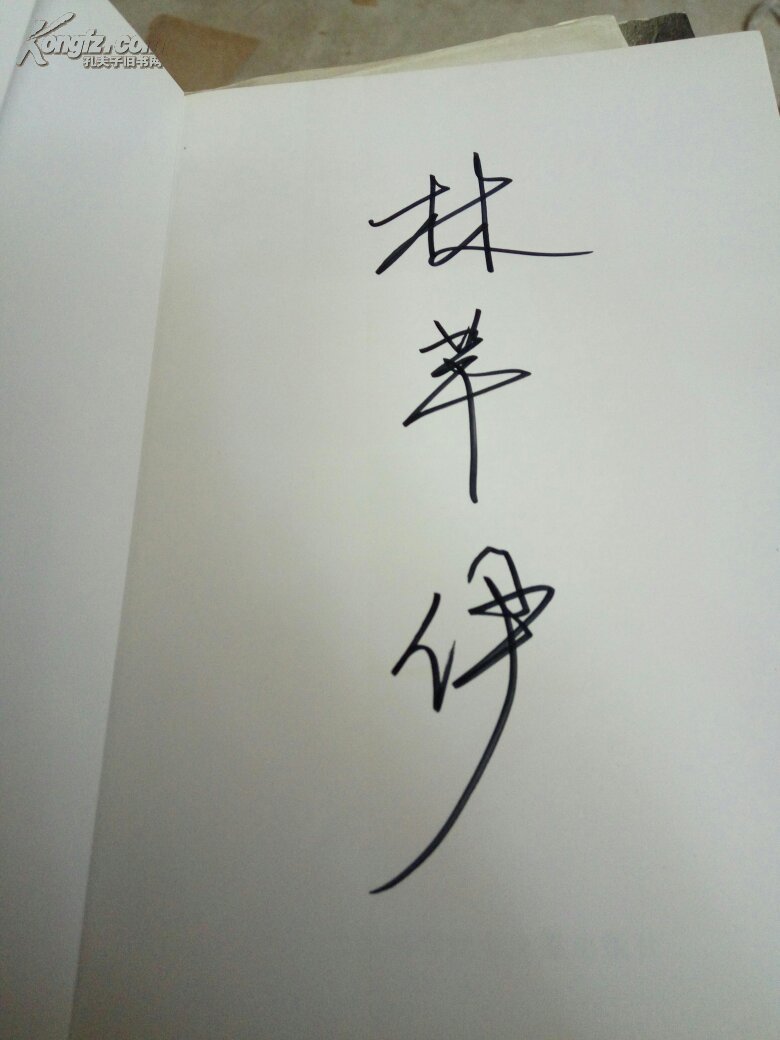 Kongfz.com
孔夫子旧书网
林
苹
伊